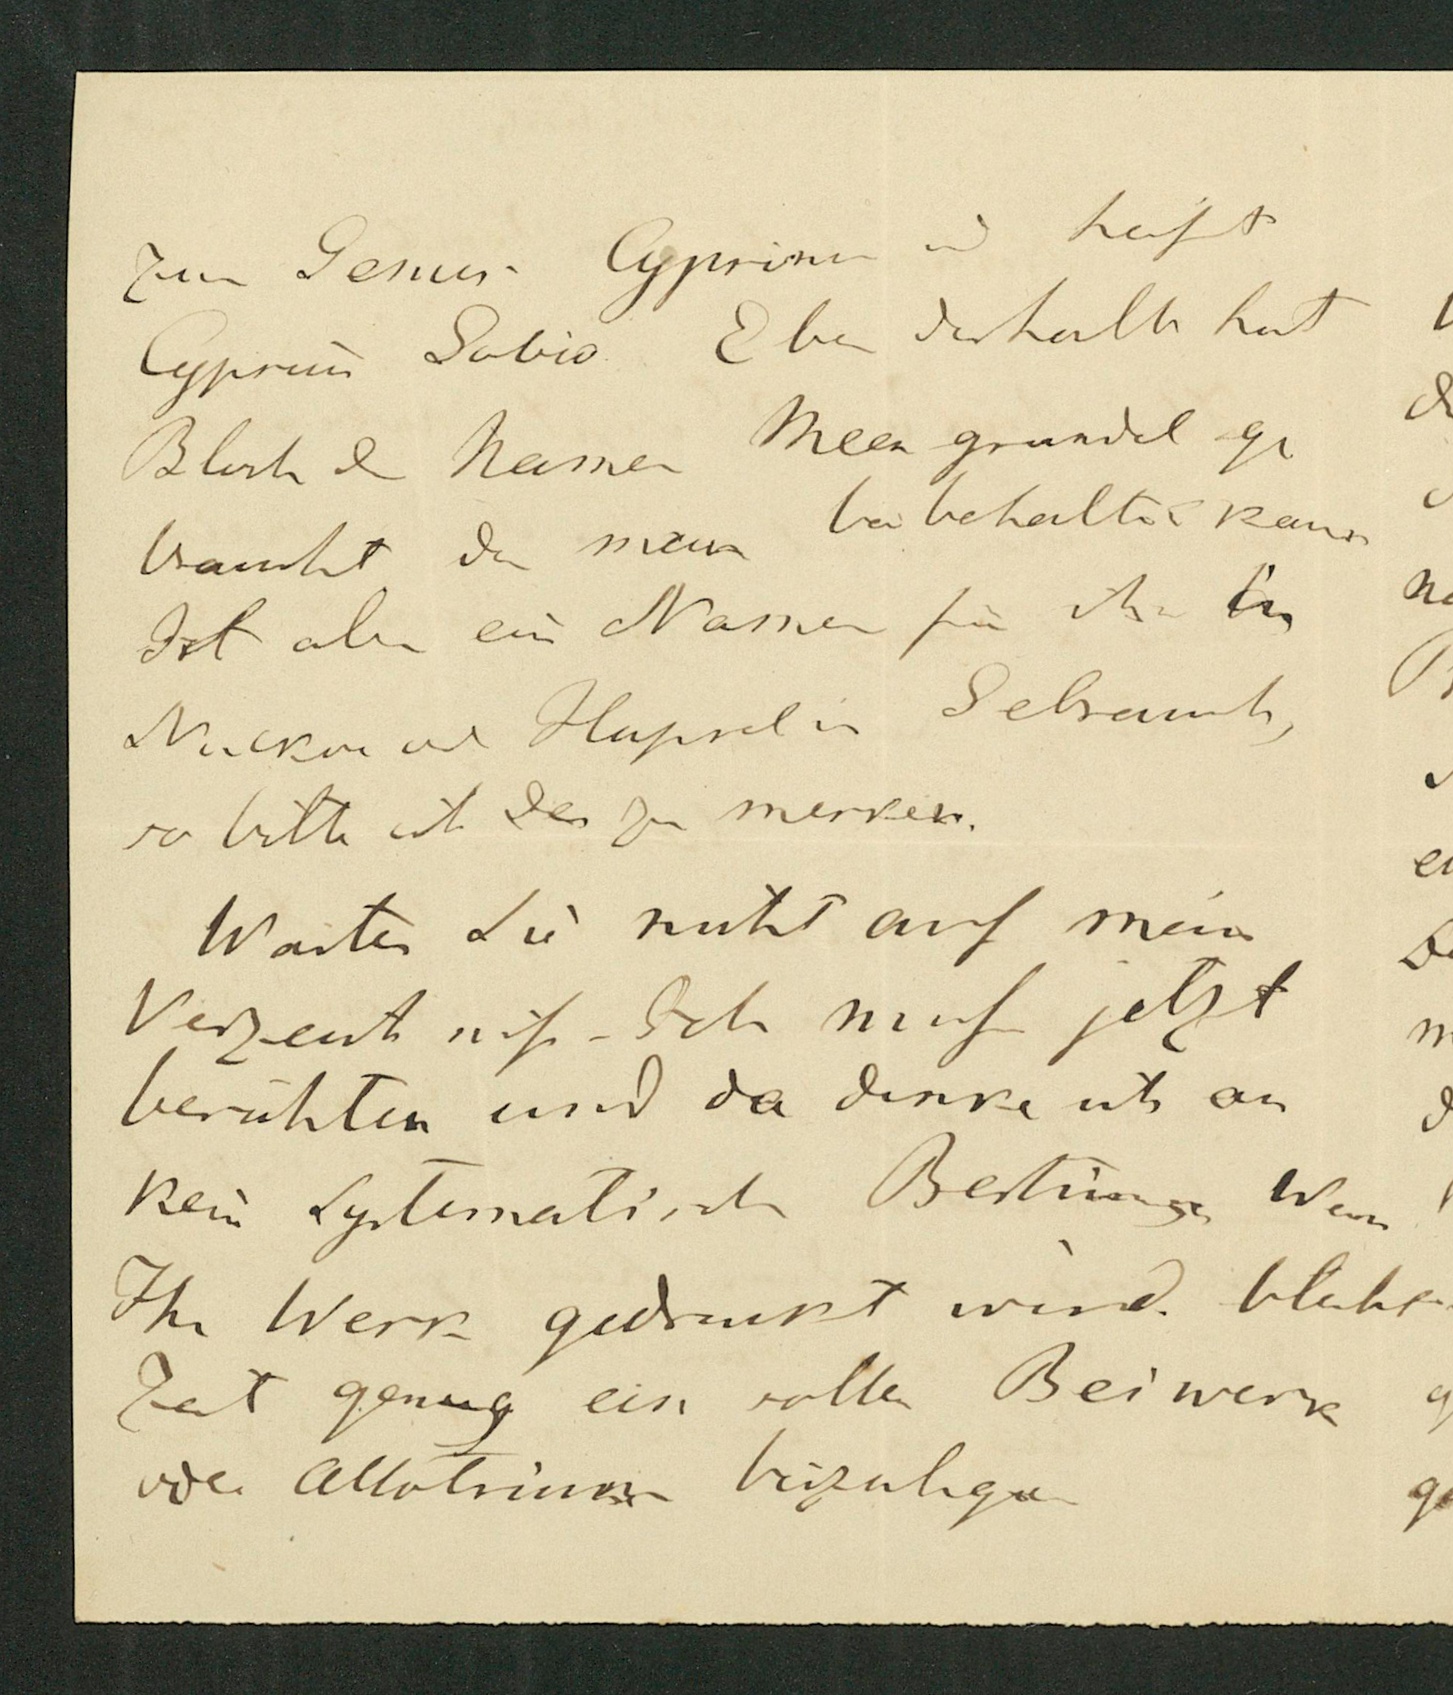 zum Genus Cyprinus und heißt
Cyprinus Gobio. Eben deshalb hat
Bloch den Namen Meergrundel ge
braucht den man beibehalten kann
Ist aber ein Namen für ihn in
Nuckoe und Hapsal in Gebrauch,
so bitte ich den zu merken.
Warten Sie nicht auf mein
Verzeichniß. Ich muß jetzt
berichten und da denke ich an
kein systematische Bestimmungen Wenn
Ihr Werk gedruckt wird. bleibt
Zeit genug ein sollen Beiwerk
oder Allotrium beizulegen